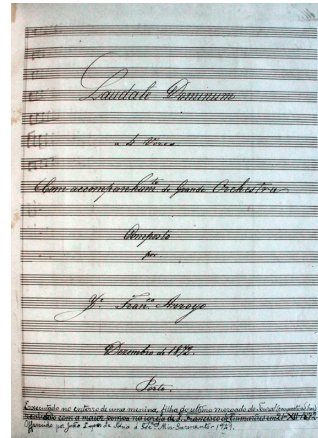 Laudate Dominum
a 4 Vozes
Com accompanhamto de Grande Orchestra
Composto
por
Jo. Franco Arroyo
Dezembro de 1872
Porto.
Executado no enterro de uma menina, filha do ultimo morgado de Toural (composto de
realizado com a maior pompa na igreja de S. Francisco de Guimarães em 21-XII-1872
Offerecido por João Lopes de Faria á Socde Mar Sarmento 1923.